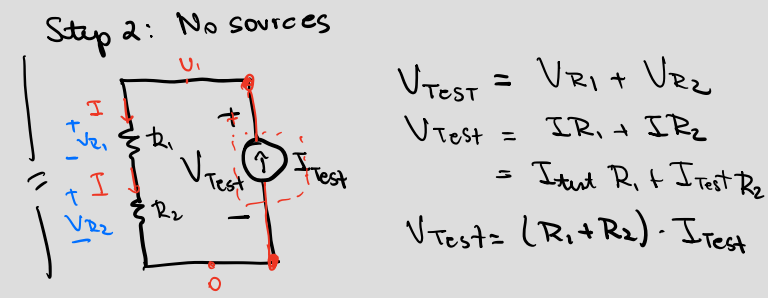 Step 2: No sources
V₁
I
+
V_R₁
−
R₁
I
+
V_R₂
−
R₂
+
V_Test
−
I_Test
0
V_Test = V_R₁ + V_R₂
V_Test = IR₁ + IR₂
= I_test R₁ + I_Test R₂
V_Test = (R₁ + R₂) · I_Test